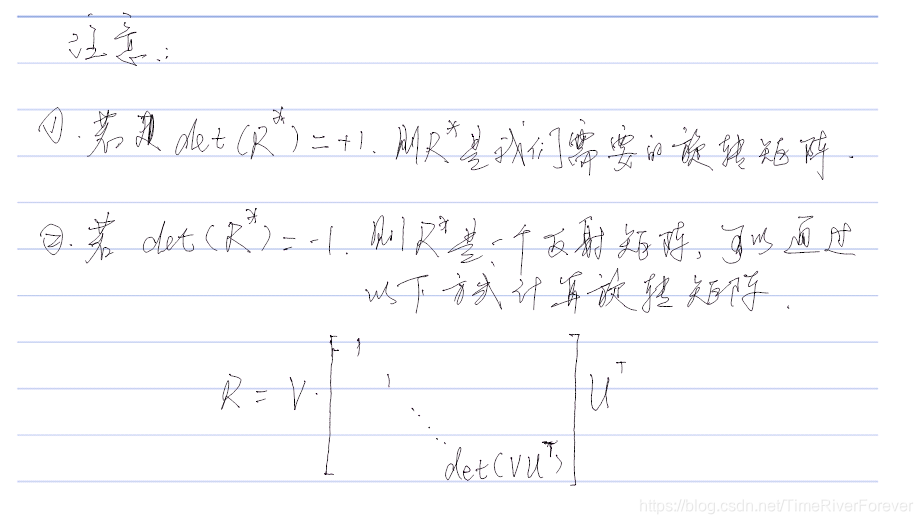 注意:
①. 若 det(R*)=+1. 则R*是我们需要的旋转矩阵.
②. 若 det(R*)=-1. 则R*是一个反射矩阵, 可以通过
以下方式计算旋转矩阵.
R = V · [ 1
1
⋱
det(VUᵀ) ] Uᵀ
https://blog.csdn.net/TimeRiverForever